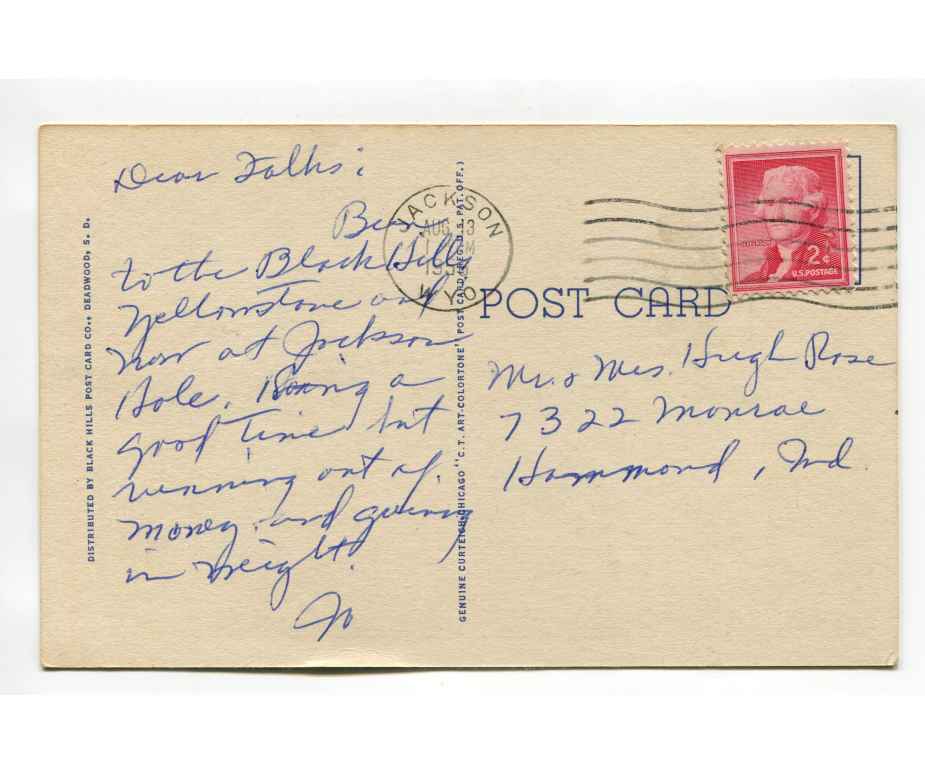 Dear Folks:
Been
to the Black Hills
Yellowstone and
now at Jackson
Hole. Having a
good time but
running out of
money and gaining
in weight.
Jo
DISTRIBUTED BY BLACK HILLS POST CARD CO., DEADWOOD, S. D.
GENUINE CURTEICH-CHICAGO "C.T. ART-COLORTONE" POST CARD (REG. U.S. PAT. OFF.)
JACKSON
AUG 13
WYO
2¢
U.S. POSTAGE
POST CARD
Mr. & Mrs. Hugh Rose
7322 Monroe
Hammond, Ind.